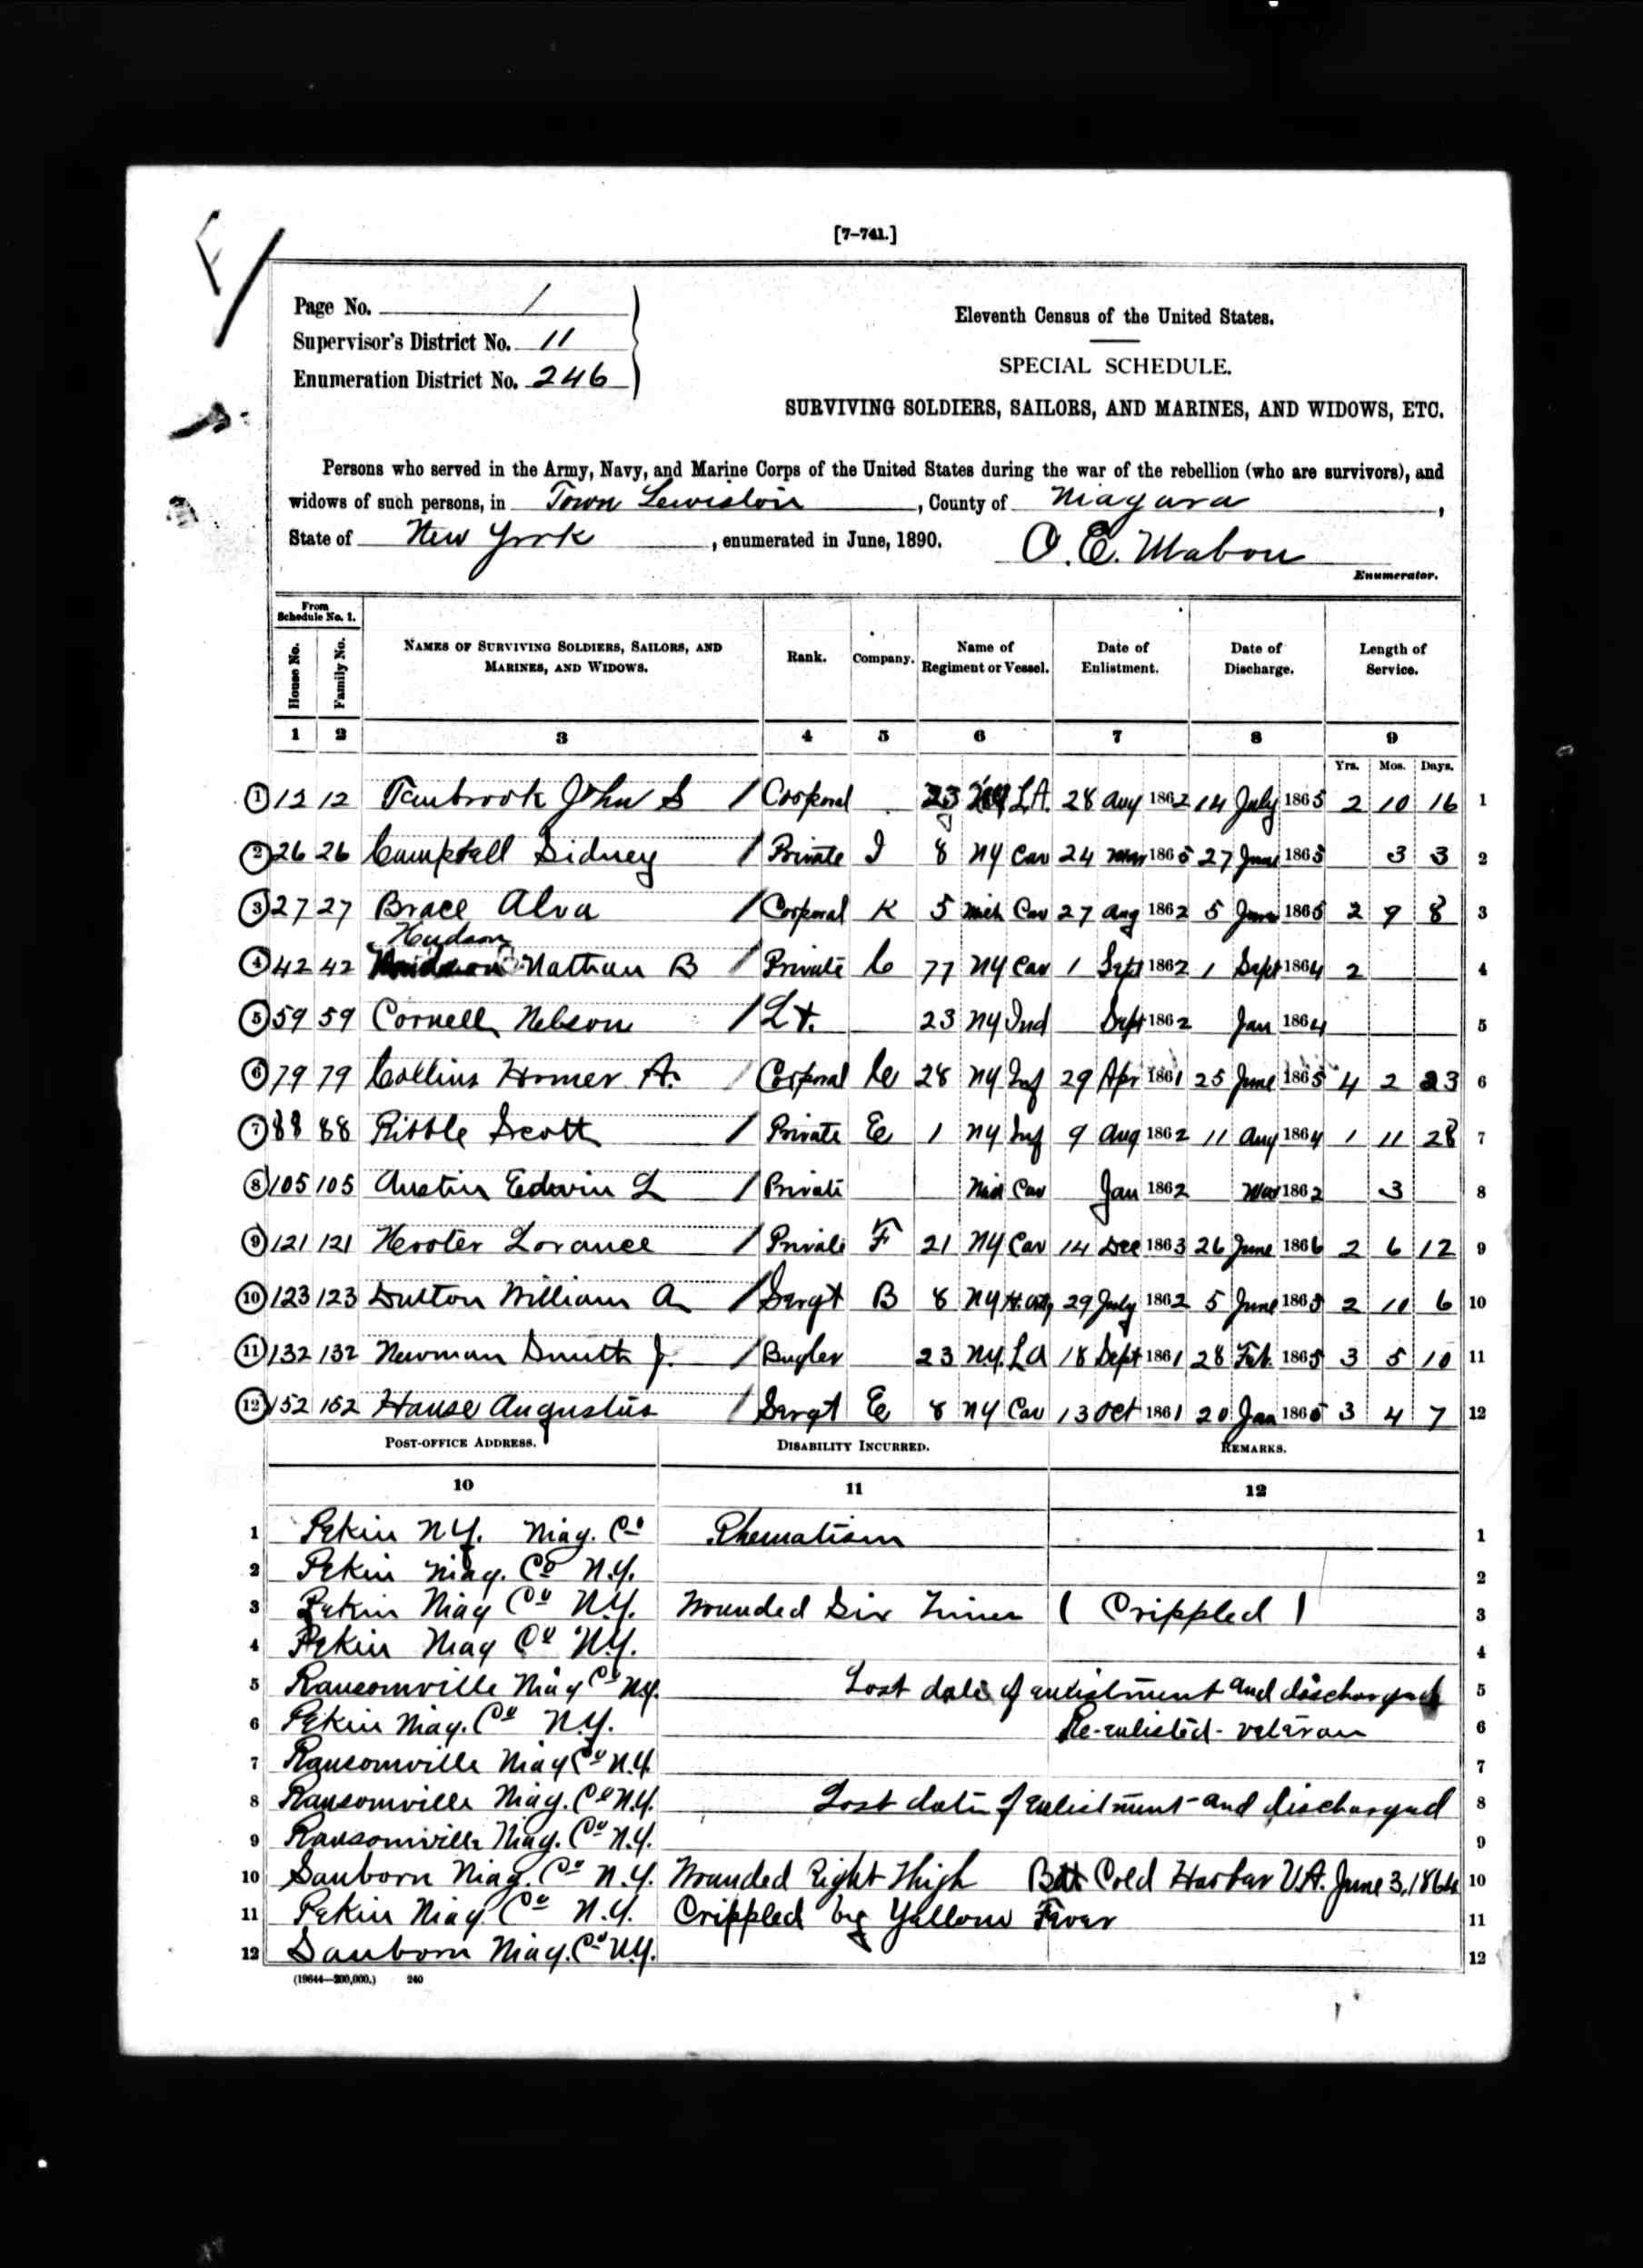 [7-741.]
Page No. 1
Supervisor's District No. 11
Enumeration District No. 246
Eleventh Census of the United States.
SPECIAL SCHEDULE.
SURVIVING SOLDIERS, SAILORS, AND MARINES, AND WIDOWS, ETC.
Persons who served in the Army, Navy, and Marine Corps of the United States during the war of the rebellion (who are survivors), and
widows of such persons, in Town Lewiston, County of Niagara,
State of New York, enumerated in June, 1890. O. E. Mabon
Enumerator.
From Schedule No. 1.
House No. Family No. NAMES OF SURVIVING SOLDIERS, SAILORS, AND MARINES, AND WIDOWS. Rank. Company. Name of Regiment or Vessel. Date of Enlistment. Date of Discharge. Length of Service.
1 2 3 4 5 6 7 8 9
Yrs. Mos. Days.
1 12 12 Tenbrook John S / Corporal 23 L A. 28 Aug 1862 14 July 1865 2 10 16 1
2 26 26 Campbell Sidney / Private I 8 NY Cav 24 Mar 1865 27 June 1865 3 3 2
3 27 27 Brace Alva / Corporal K 5 Mich Cav 27 Aug 1862 5 June 1865 2 9 8 3
Hudson
4 42 42 Nathan B / Private C 77 NY Cav 1 Sept 1862 1 Sept 1864 2 4
5 59 59 Cornell Nelson / Lt. 23 NY Ind Sept 1862 Jan 1864 5
6 79 79 Collins Homer A. / Corporal C 28 NY Inf 29 Apr 1861 25 June 1865 4 2 23 6
7 88 88 Ribble Scott / Private E 1 NY Inf 9 Aug 1862 11 Aug 1864 1 11 28 7
8 105 105 Austin Edwin L / Private Cav Jan 1862 Mar 1862 3 8
9 121 121 Hooter Lorance / Private F 21 NY Cav 14 Dec 1863 26 June 1866 2 6 12 9
10 123 123 Dutton William A / Sergt B 8 NY H. Arty 29 July 1862 5 June 1865 2 10 6 10
11 132 132 Newman Smith J. / Bugler 23 NY. L A 18 Sept 1861 28 Feb. 1865 3 5 10 11
12 152 152 Hause Augustus / Sergt E 8 NY Cav 13 Oct 1861 20 Jan 1865 3 4 7 12
POST-OFFICE ADDRESS. DISABILITY INCURRED. REMARKS.
10 11 12
1 Pekin N.Y. Niag. Co Rhematism 1
2 Pekin Niag. Co N.Y. 2
3 Pekin Niag Co N.Y. Wounded Six Times ( Crippled ) 3
4 Pekin Niag Co N.Y. 4
5 Ransomville Niag Co N.Y. Lost date of enlistment and discharged 5
6 Pekin Niag. Co N.Y. Re-enlisted - veteran 6
7 Ransomville Niag Co N.Y. 7
8 Ransomville Niag. Co N.Y. Lost date of enlistment - and discharged 8
9 Ransomville Niag. Co N.Y. 9
10 Sanborn Niag. Co N.Y. Wounded Right Thigh Batt Cold Harbor VA. June 3, 1864 10
11 Pekin Niag. Co N.Y. Crippled by Yellow Fever 11
12 Sanborn Niag. Co N.Y. 12
(19644—200,000.) 240